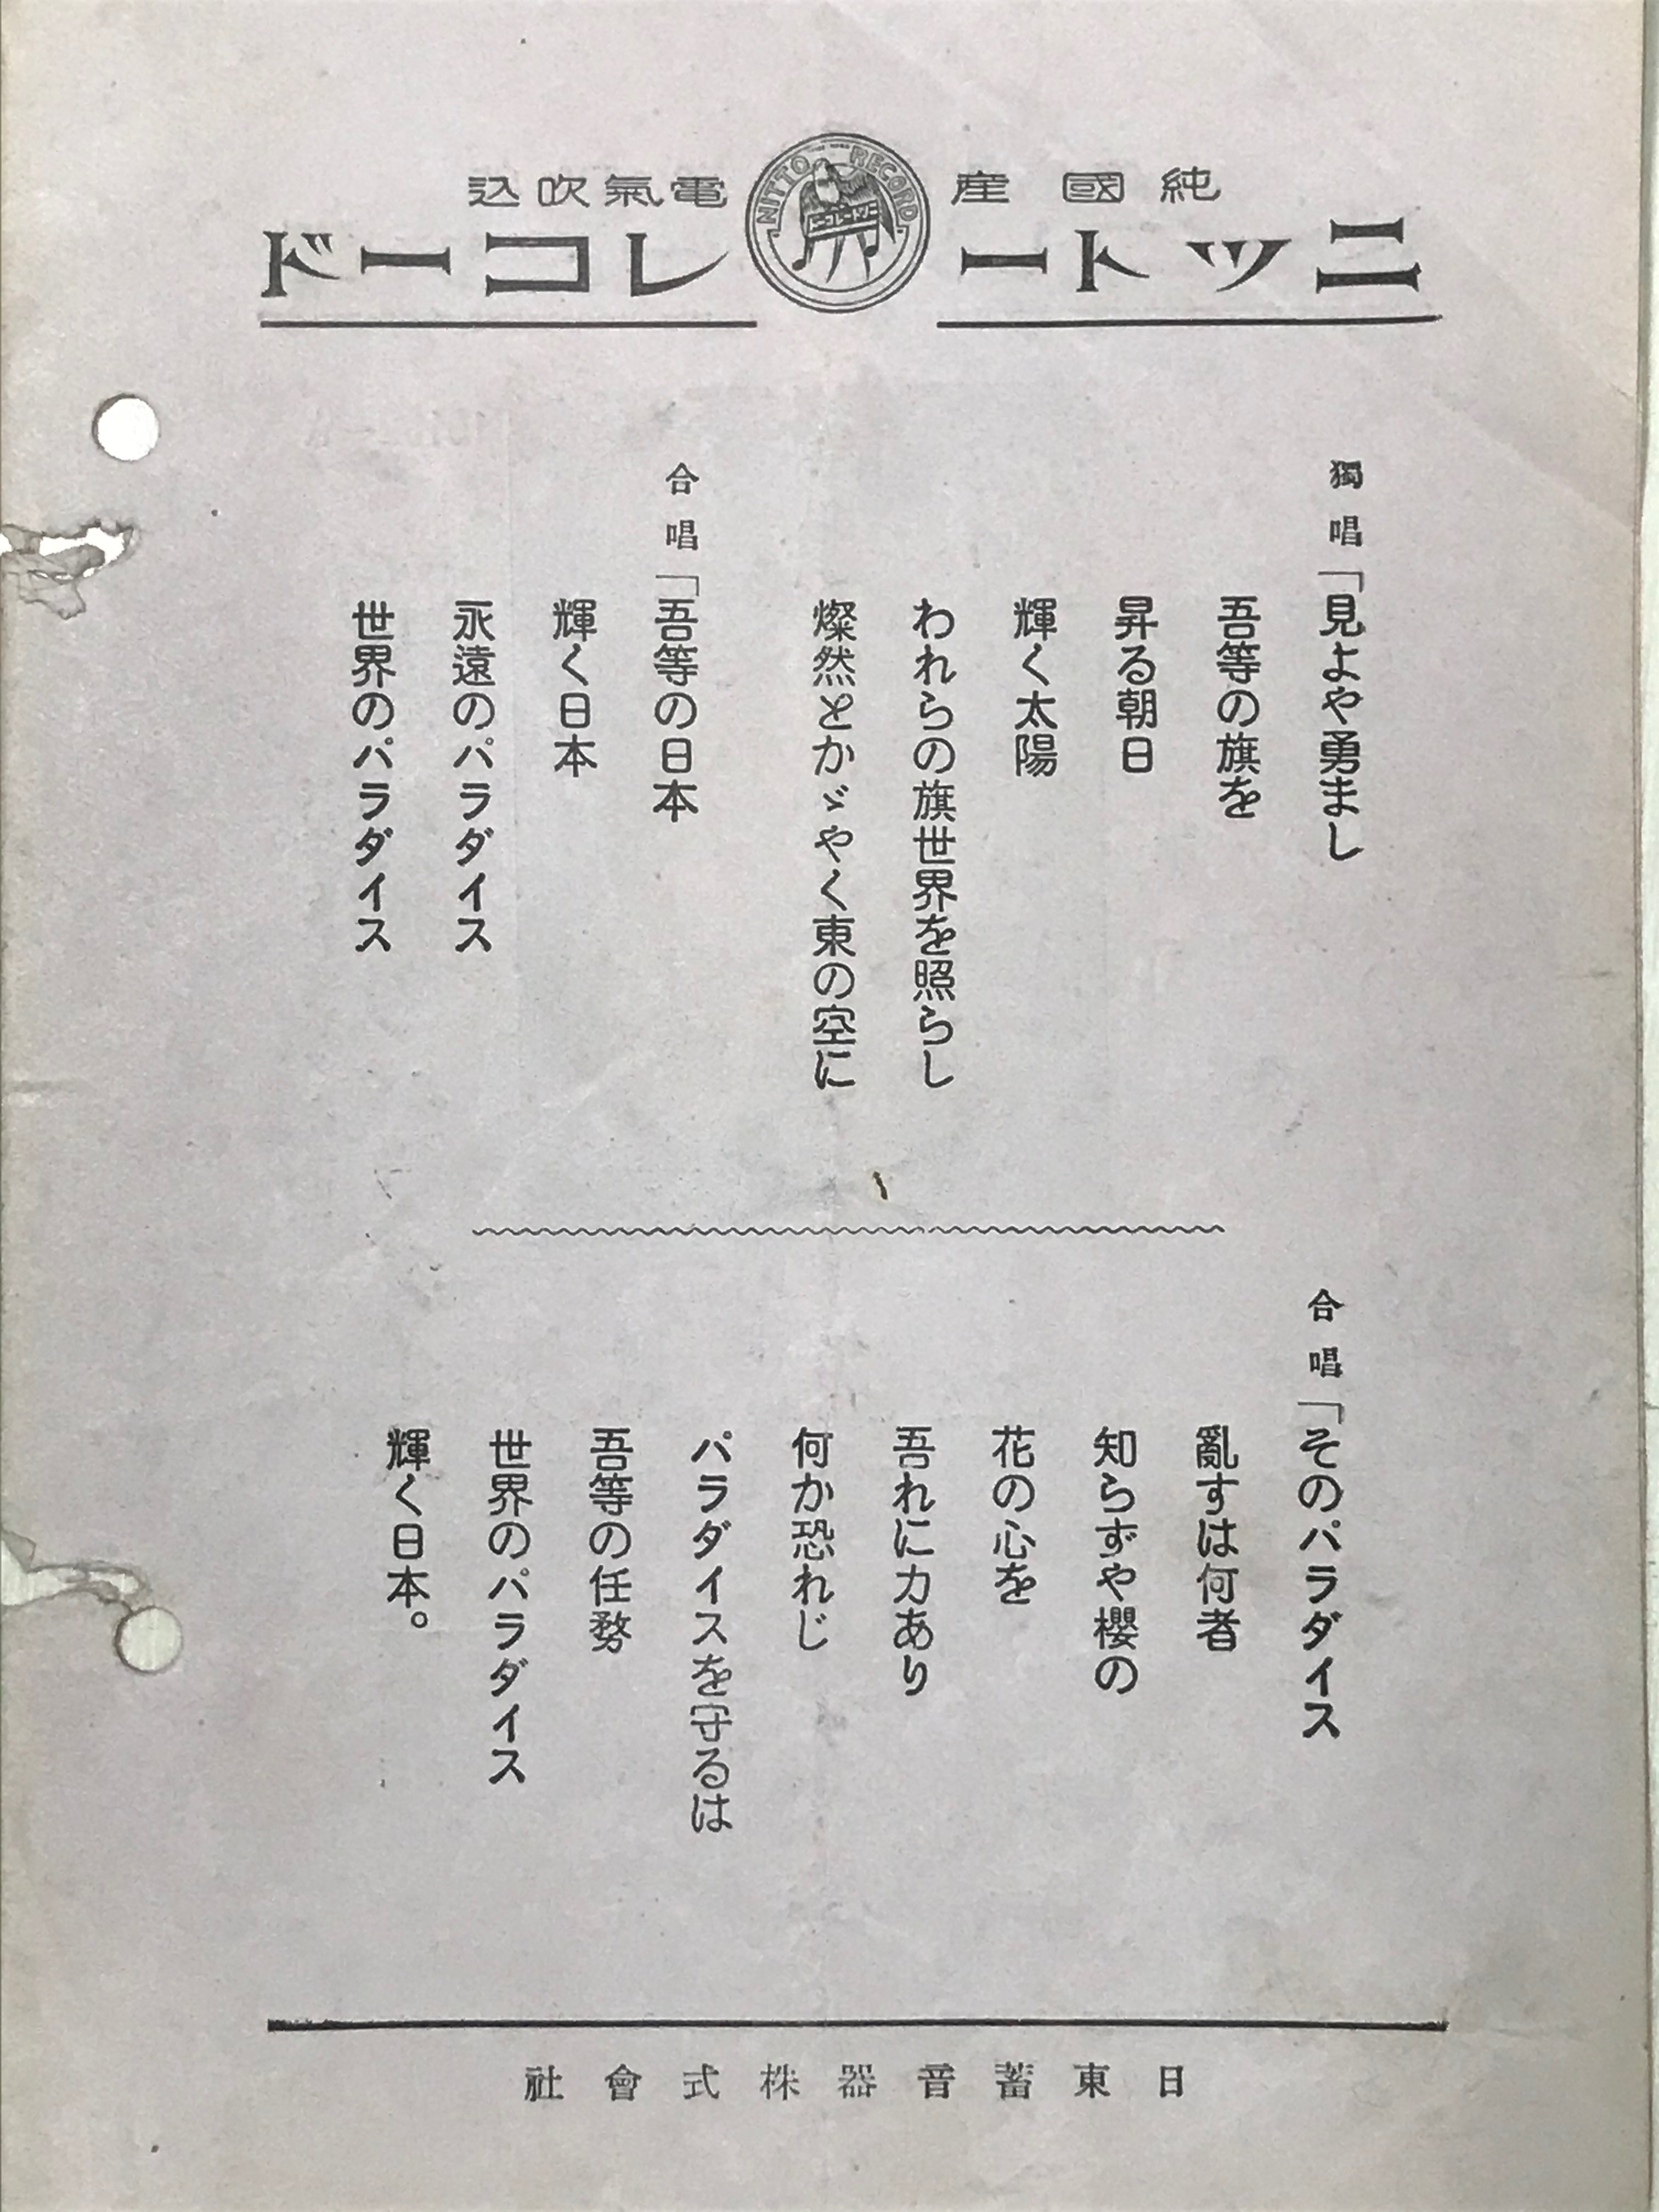 純國産
電氣吹込
ニットー
レコード
NITTO RECORD
ニットーレコード
獨唱「見よや勇まし
吾等の旗を
昇る朝日
輝く太陽
われらの旗世界を照らし
燦然とかゞやく東の空に
合唱「吾等の日本
輝く日本
永遠のパラダイス
世界のパラダイス
合唱「そのパラダイス
亂すは何者
知らずや櫻の
花の心を
吾れに力あり
何か恐れじ
パラダイスを守るは
吾等の任務
世界のパラダイス
輝く日本。
日東蓄音器株式會社